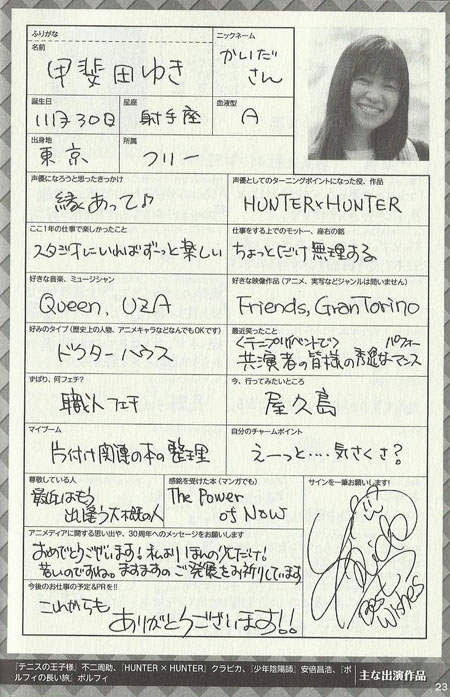 ふりがな
ニックネーム
名前
甲斐田ゆき
かいだ
さん
誕生日
星座
血液型
11月30日
射手座
A
出身地
所属
東京
フリー
声優になろうと思ったきっかけ
声優としてのターニングポイントになった役、作品
縁あって♪
HUNTER×HUNTER
ここ1年の仕事で楽しかったこと
仕事をする上でのモットー、座右の銘
スタジオにいればずーっと楽しい
ちょっとだけ無理する
好きな音楽、ミュージシャン
好きな映像作品（アニメ、実写などジャンルは問いません）
Queen, UZA
Friends, GranTorino
好みのタイプ（歴史上の人物、アニメキャラなどなんでもOKです）
最近笑ったこと
ドクターハウス
〈テニプリイベントで〉
共演者の皆様の秀逸なパフォーマンス
ずばり、何フェチ?
今、行ってみたいところ
職人フェチ
屋久島
マイブーム
自分のチャームポイント
片付け関連の本の整理
えーっと‥‥気さくさ?
尊敬している人
感銘を受けた本（マンガでも）
サインを一筆お願いします!
最近はもう
出逢う大概の人
The Power
of Now
Best
Wishes
アニメディアに関する思い出や、30周年へのメッセージをお願いします
おめでとうございます!私よりほんの少しだけ
若いのですね。ますますのご発展をお祈りしています
今後のお仕事の予定&PRを!!
これからも
ありがとうございます!!
『テニスの王子様』不二周助、『HUNTER×HUNTER』クラピカ、『少年陰陽師』安倍昌浩、『ポ
ルフィの長い旅』ポルフィ
主な出演作品
23